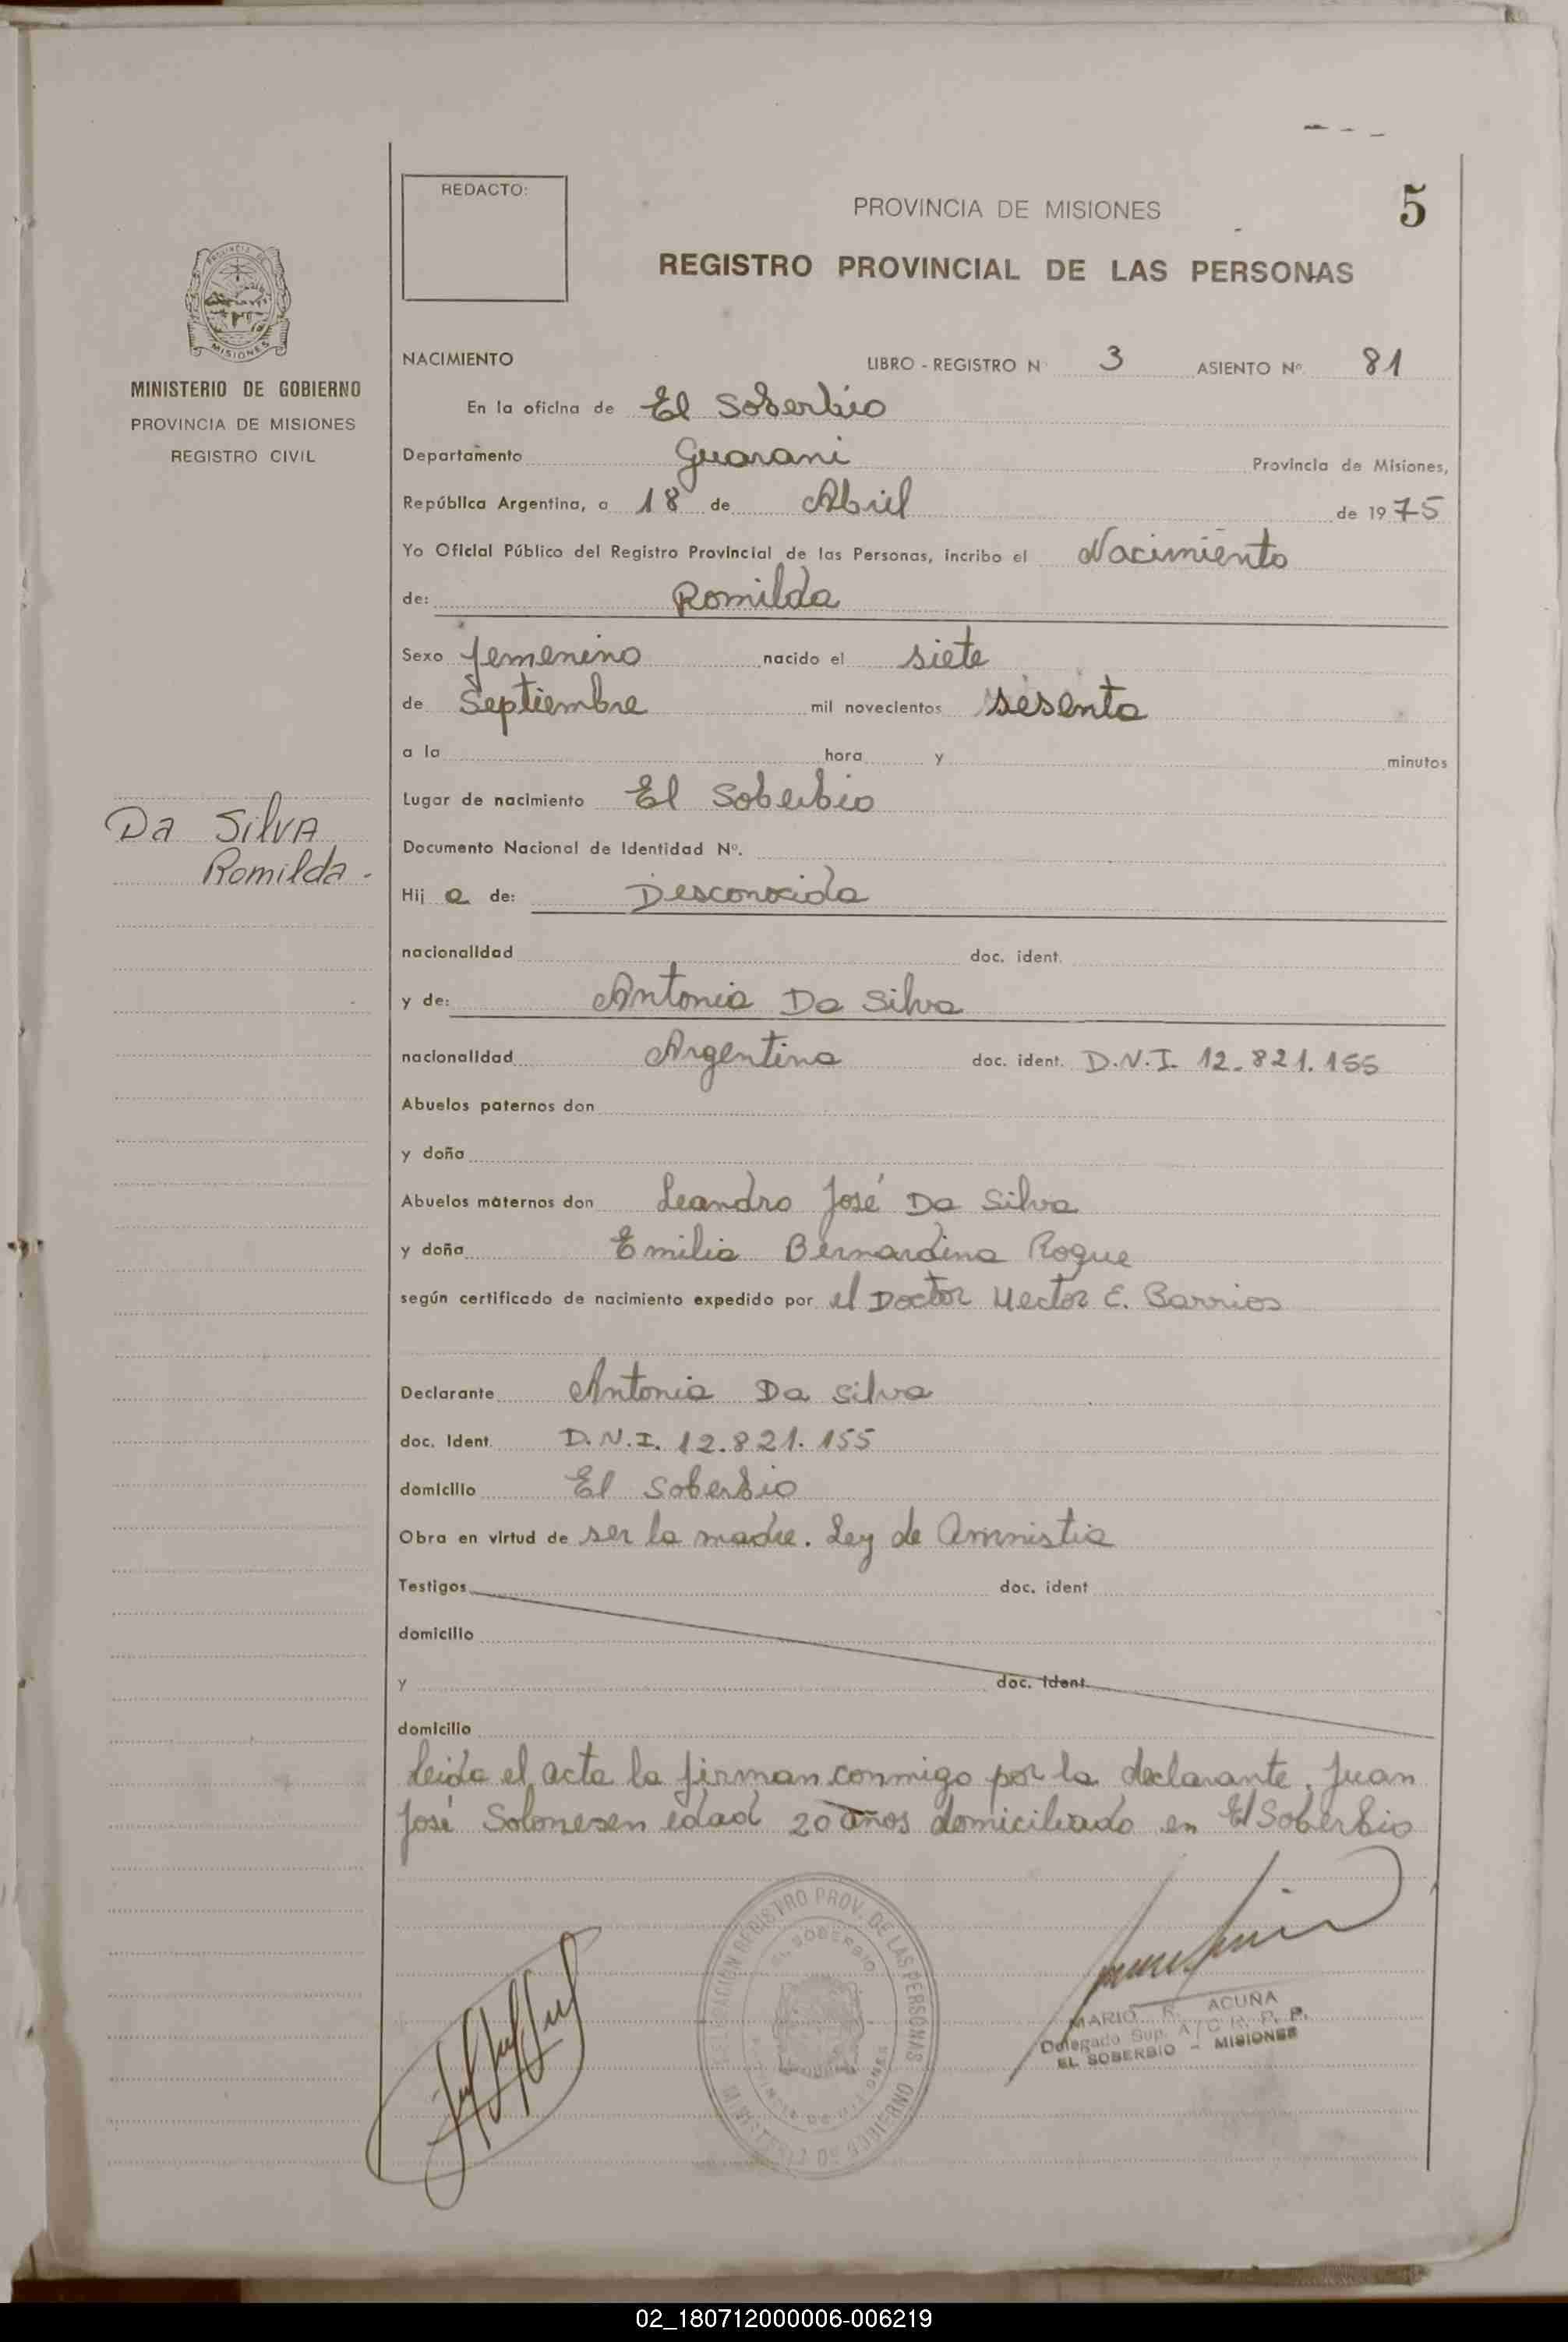 5
REDACTO:
PROVINCIA DE MISIONES
REGISTRO PROVINCIAL DE LAS PERSONAS
MISIONES
MINISTERIO DE GOBIERNO
PROVINCIA DE MISIONES
REGISTRO CIVIL
NACIMIENTO LIBRO - REGISTRO N 3 ASIENTO Nº 81
En la oficina de El Soberbio
Departamento Guarani Provincia de Misiones,
República Argentina, a 18 de Abril de 1975
Yo Oficial Público del Registro Provincial de las Personas, incribo el Nacimiento
de: Romilda
Sexo femenino nacido el siete
de Septiembre mil novecientos sesenta
a la hora y minutos
Lugar de nacimiento El Soberbio
Da Silva
Romilda -
Documento Nacional de Identidad Nº.
Hij a de: Desconocida
nacionalidad doc. ident.
y de: Antonia Da Silva
nacionalidad Argentina doc. ident. D.N.I. 12.821.155
Abuelos paternos don
y doña
Abuelos maternos don Leandro José Da Silva
y doña Emilia Bernardina Roque
según certificado de nacimiento expedido por el Doctor Hector E. Barrios
Declarante Antonia Da Silva
doc. Ident. D.N.I. 12.821.155
domicilio El Soberbio
Obra en virtud de ser la madre. Ley de Amnistia
Testigos doc. ident
domicilio
y doc. Ident.
domicilio
leida el acta la firman conmigo por la declarante, Juan
José edad 20 años domiciliado en El Soberbio
REGISTRO PROV. DE LAS PERSONAS
EL SOBERBIO
MARIO R. ACUÑA
Delegado Sup. A/C R. P. P.
EL SOBERBIO - MISIONES
02_180712000006-006219